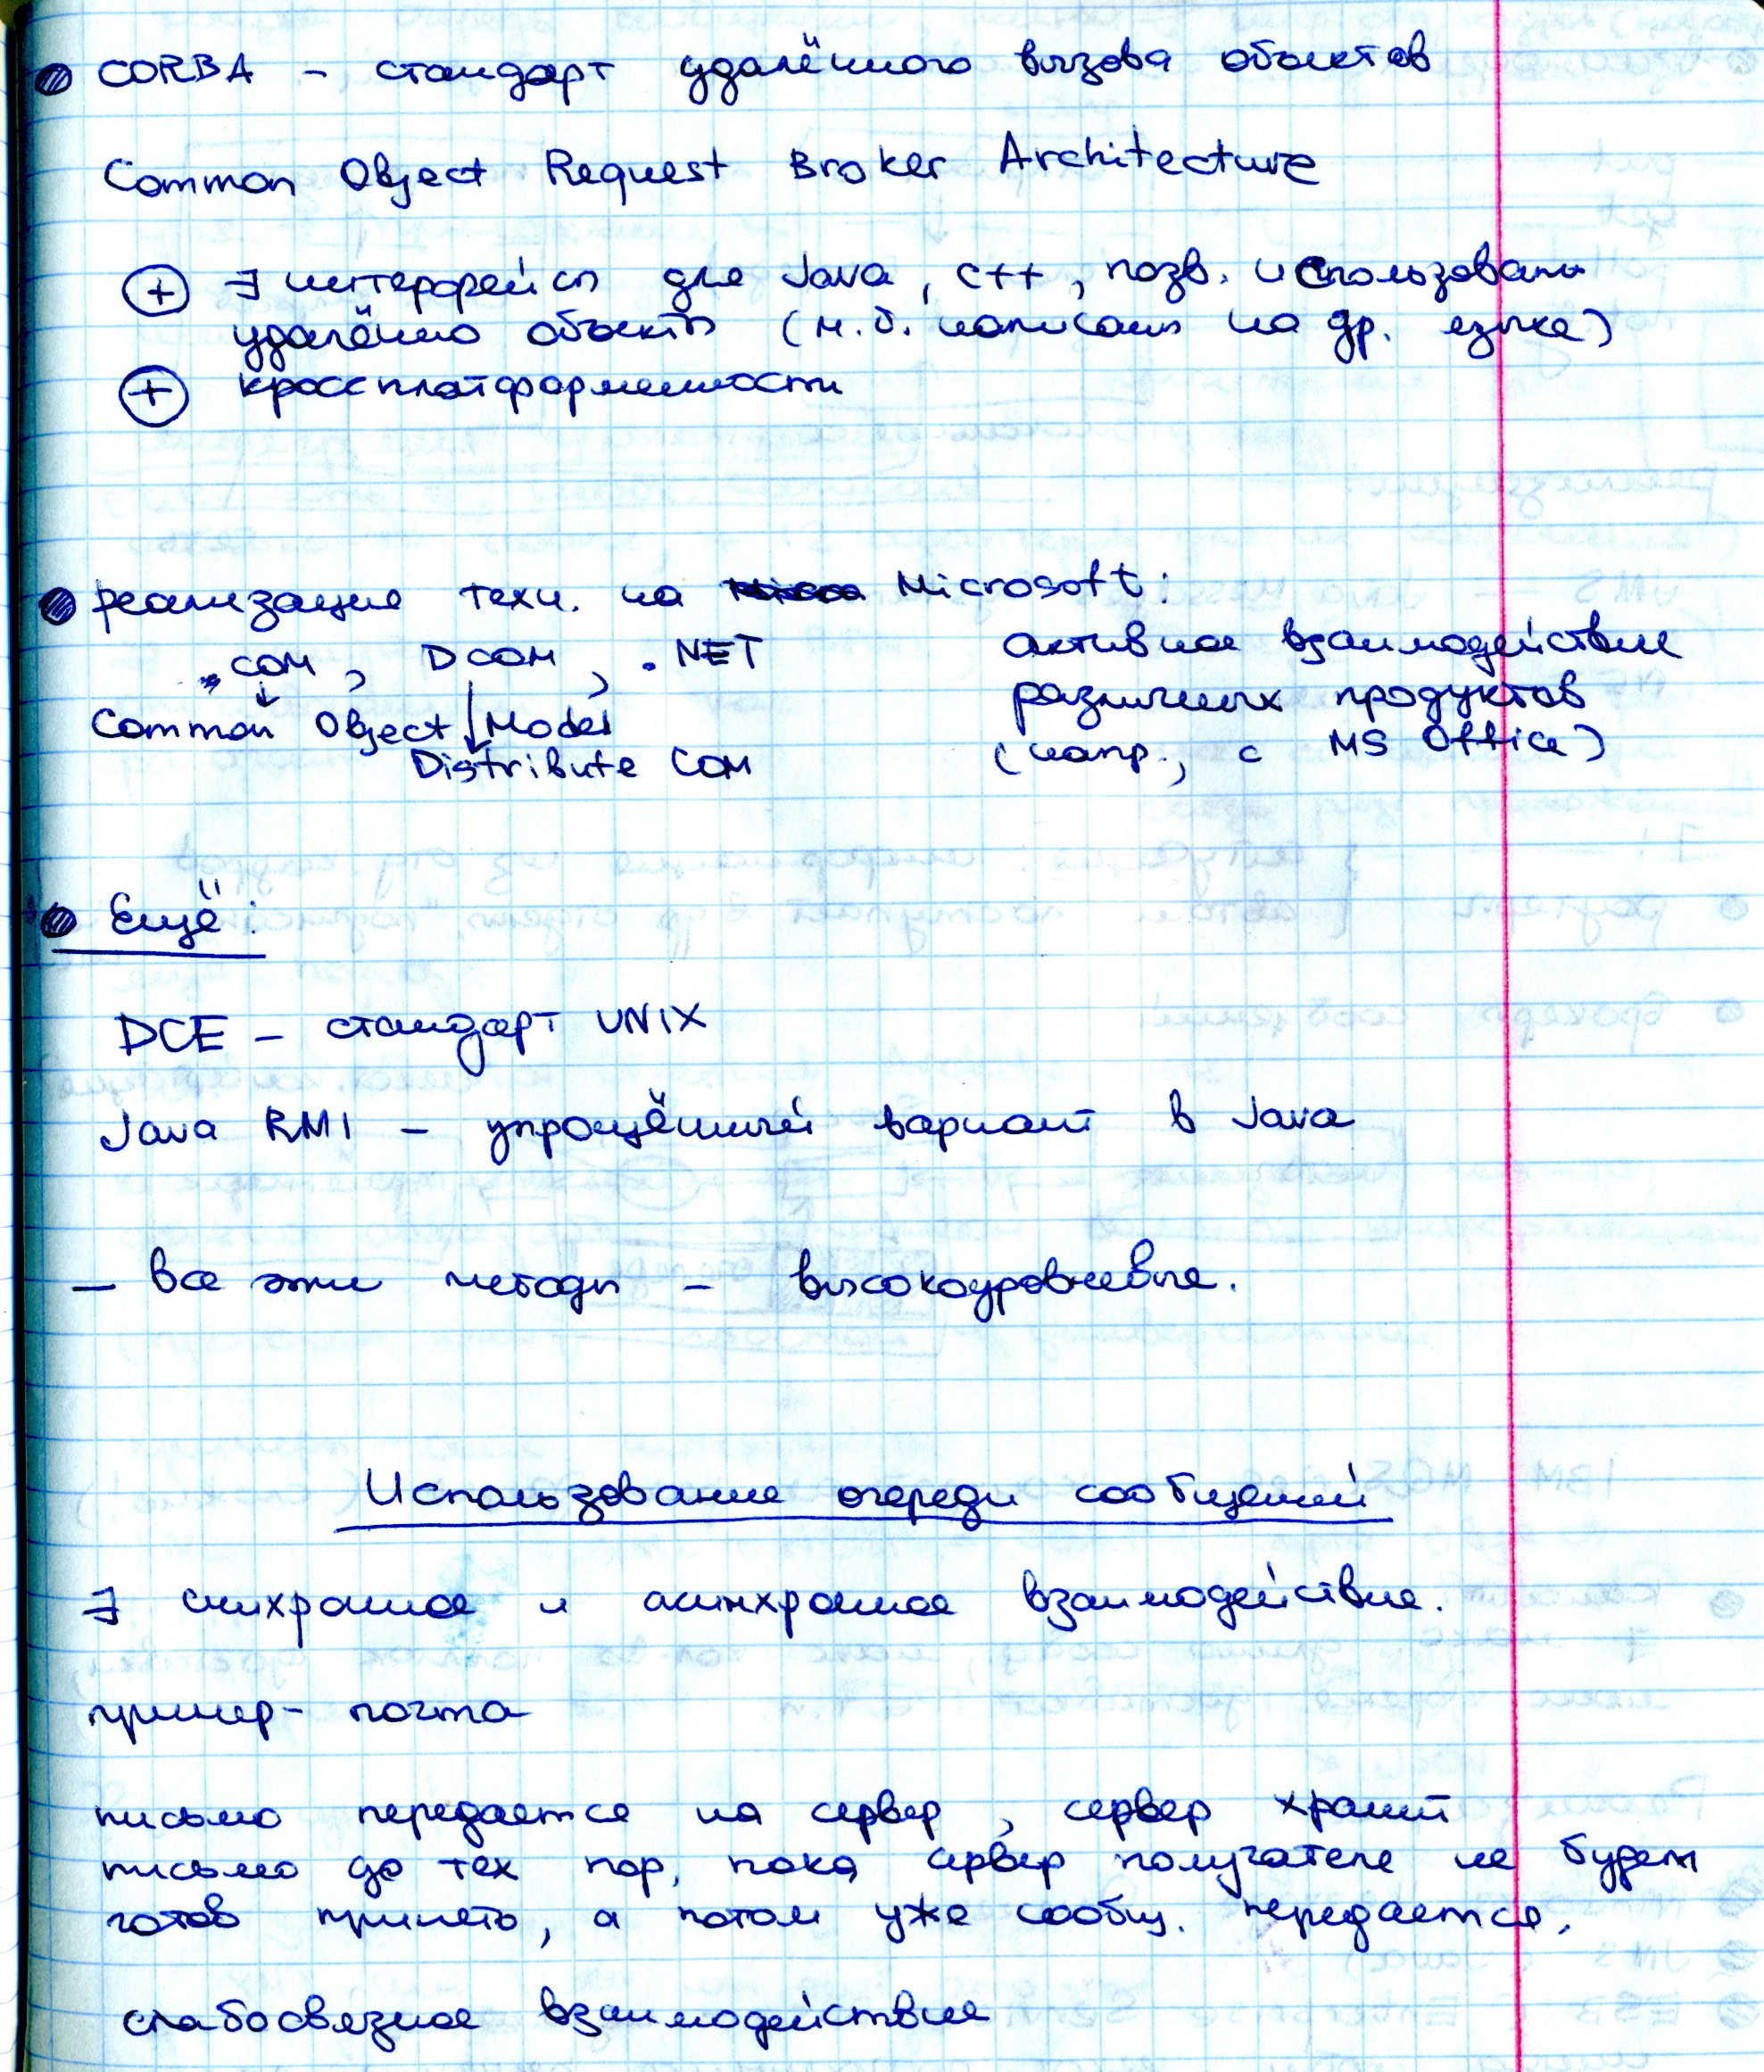 CORBA – стандарт удалённого вызова объектов
Common Object Request Broker Architecture
⊕ ∃ интерфейсы для Java, C++, позв. использовать
удалённо объекты (м.б. написаны на др. языке)
⊕ кроссплатформенности
реализация техн. на Microsoft:
COM, DCOM, .NET
активное взаимодействие
различных продуктов
(напр., с MS Office)
↓
Common Object Model
↓
Distribute COM
Ещё:
DCE – стандарт UNIX
Java RMI – упрощённый вариант в Java
– все эти методы – высокоуровневые.
Использование очереди сообщений
∃ синхронное и асинхронное взаимодействие.
пример – почта
письмо передается на сервер, сервер хранит
письмо до тех пор, пока сервер получателя не будет
готов принять, а потом уже сообщ. передается.
слабосвязное взаимодействие